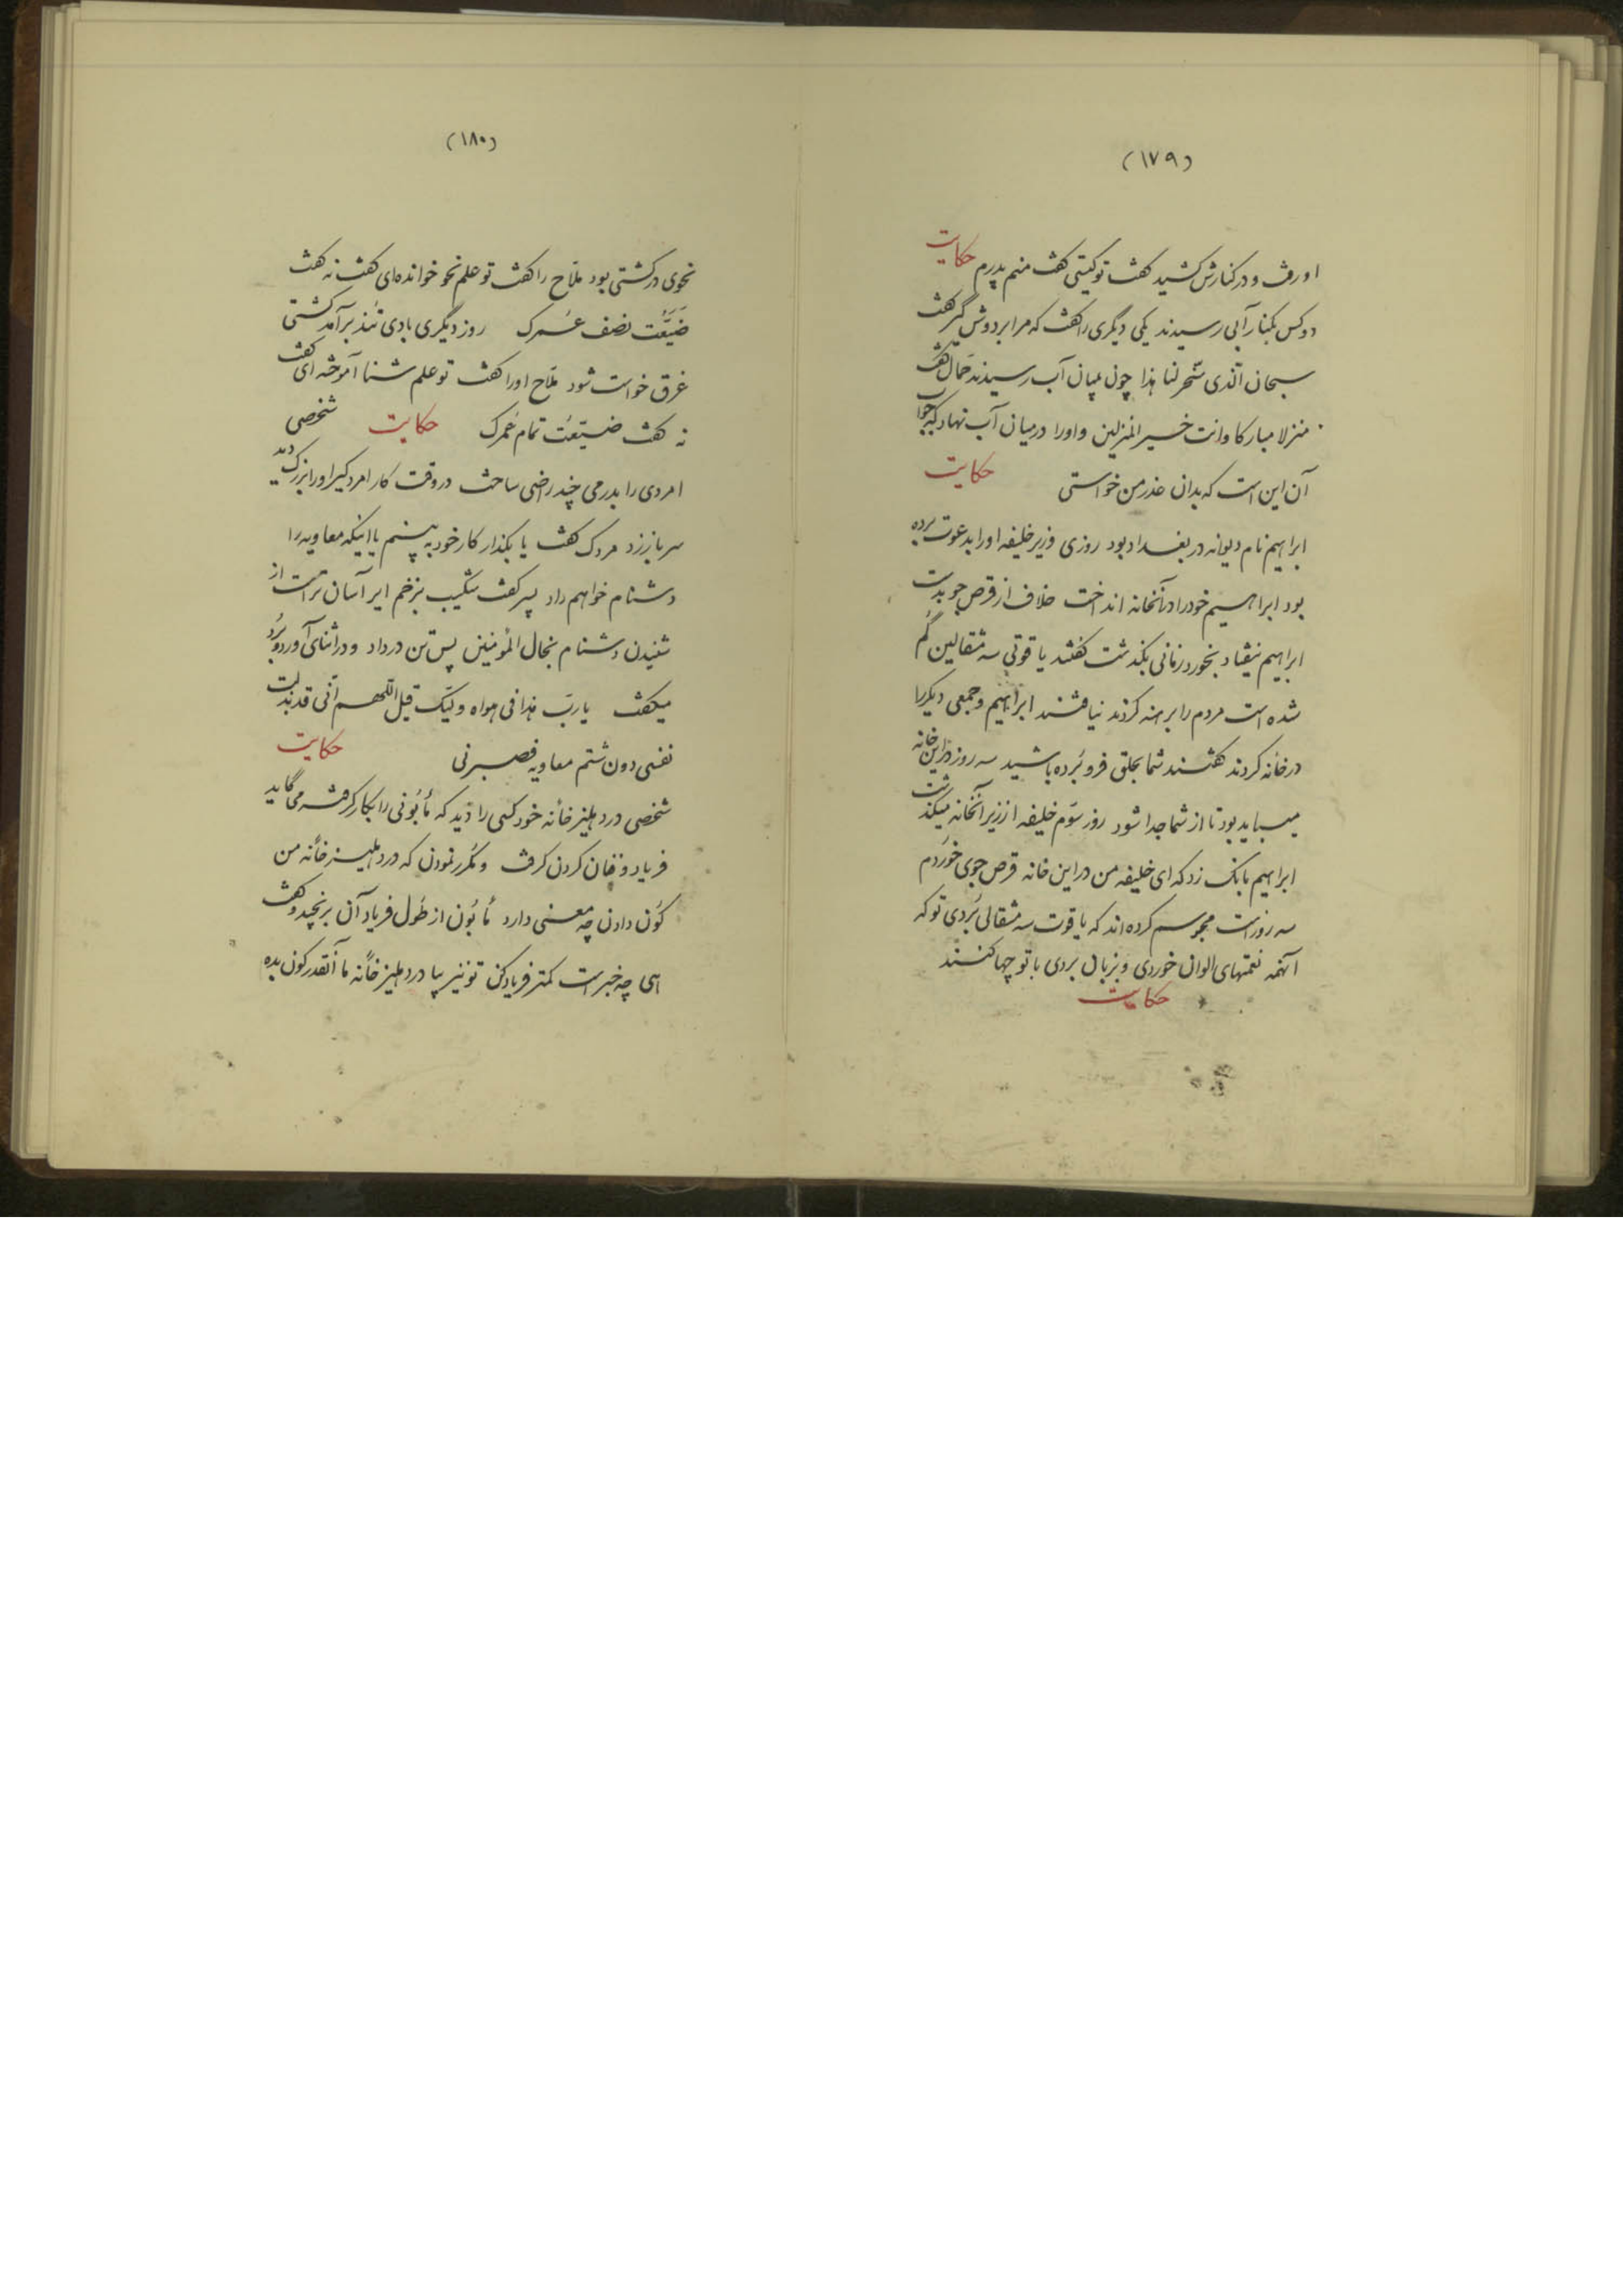 (۱۷۹)
او رفت و در کنارش کشید گفت تو کیستی گفت منم پدرم حکایت
دو کس بکنار آبی رسیدند یکی دیگری را گفت که مرا بر دوش گیر گفت
سبحان الذی سخر لنا هذا چون بمیان آب رسیدند حمال گفت
منزلا مبارکا وانت خیر المنزلین و او را در میان آب نهاد که جواب
آن این است که بدان عذر من خواستی حکایت
ابراهیم نام دیوانه در بغداد بود روزی وزیر خلیفه او را بدعوت برده
بود ابراهیم خود را در آنخانه انداخت خلاف از قرص جو بدست
ابراهیم نیفتاد بخورد زمانی بگذشت گفتند یاقوتی سه مثقالین گم
شده است مردم را برهنه کردند نیافتند ابراهیم و جمعی دیگر را
در خانه کردند گفتند شما بحلق فرو برده باشید سه روز در این خانه
میباید بود تا از شما جدا شود روز سوم خلیفه از زیر آنخانه میگذشت
ابراهیم بانک زد که ای خلیفه من در این خانه قرص جوی خوردم
سه روز است محبوسم کرده اند که یاقوت سه مثقالی بردی تو که
آنهمه نعمتهای الوان خوردی و بزیان بردی با تو چها کنند
حکایت
(۱۸۰)
نحوی در کشتی بود ملاح را گفت تو علم نحو خوانده ای گفت نه گفت
ضَیَّعْتَ نصف عمرک روز دیگری بادی تند برآمد کشتی
غرق خواست شود ملاح او را گفت تو علم شنا آموخته ای گفت
نه گفت ضیّعت تمام عُمرک حکایت شخصی
امردی را بدرمی چند راضی ساخت در وقت کار امرد کیر او را بزرگ دید
سر باز زد مردک گفت یا بگذار کار خود به بینم یا اینکه معاویه را
دشنام خواهم داد پسر گفت شکیب بزخم ایر آسان تر است از
شنیدن دشنام بخال المؤمنین پس تن در داد و در اثنای آورد و بُرد
میگفت یا ربّ هذا فی هواه ولیّک قیل اللّهم انّی قد بذلت
نفسی دون شتم معاویه فصبرنی حکایت
شخصی در دهلیز خانه خود کسی را دید که مأبونی را بکار گرفته می گاید
فریاد و فغان کردن گرفت و مکرر نمودن که در دهلیز خانه من
کون دادن چه معنی دارد مأبون از طول فریاد آن برنجید و گفت
اهی چه خبر است کمتر فریاد کن تو نیز بیا در دهلیز خانه ما آنقدر کون بده